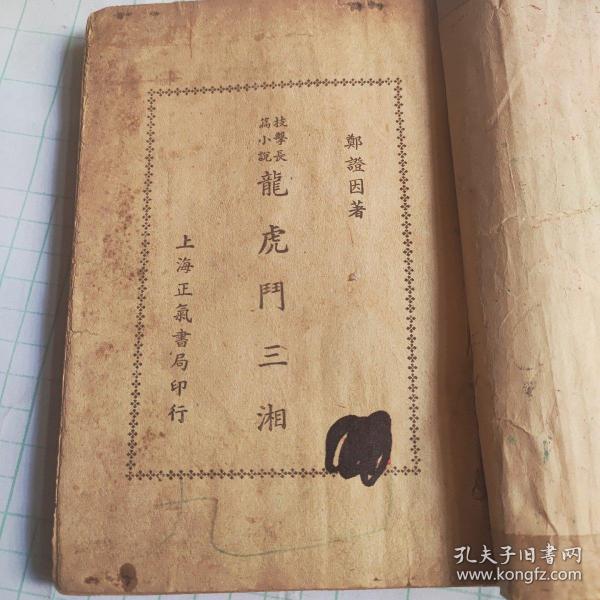 鄭證因著
技擊長篇小說
龍虎鬥三湘
上海正氣書局印行
孔夫子旧书网
www.kongfz.com